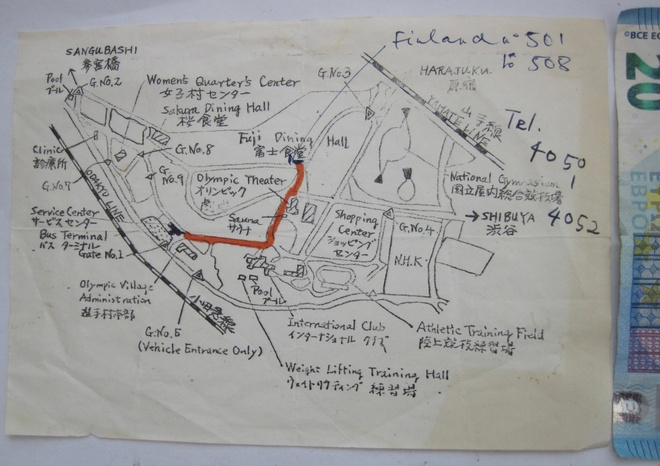 SANGUBASHI
参宮橋
Pool
プール
G.No.2
Women's Quarter's Center
女子村センター
Sakura Dining Hall
桜食堂
Fuji Dining Hall
富士食堂
Finland no 501
to 508
G.No.3
HARAJUKU
原宿
山手線
YAMATE LINE
Tel.
4050
4052
Clinic
診療所
G.No.8
G.No.7
G.No.9
ODAKYU LINE
Olympic Theater
オリンピック
National Gymnasium
国立屋内総合競技場
Service Center
サービスセンター
Sauna
サウナ
Shopping Center
ショッピングセンター
G.No.4
N.H.K.
SHIBUYA
渋谷
Bus Terminal
バス ターミナル
Gate No.1
Pool
プール
Olympic Village
Administration
選手村本部
小田急線
G.No.5
(Vehicle Entrance Only)
International Club
インターナショナル クラブ
Athletic Training Field
陸上競技練習場
Weight Lifting Training Hall
ウェイトリフティング 練習場
©BCE EC
20
ΕΒΡΟ